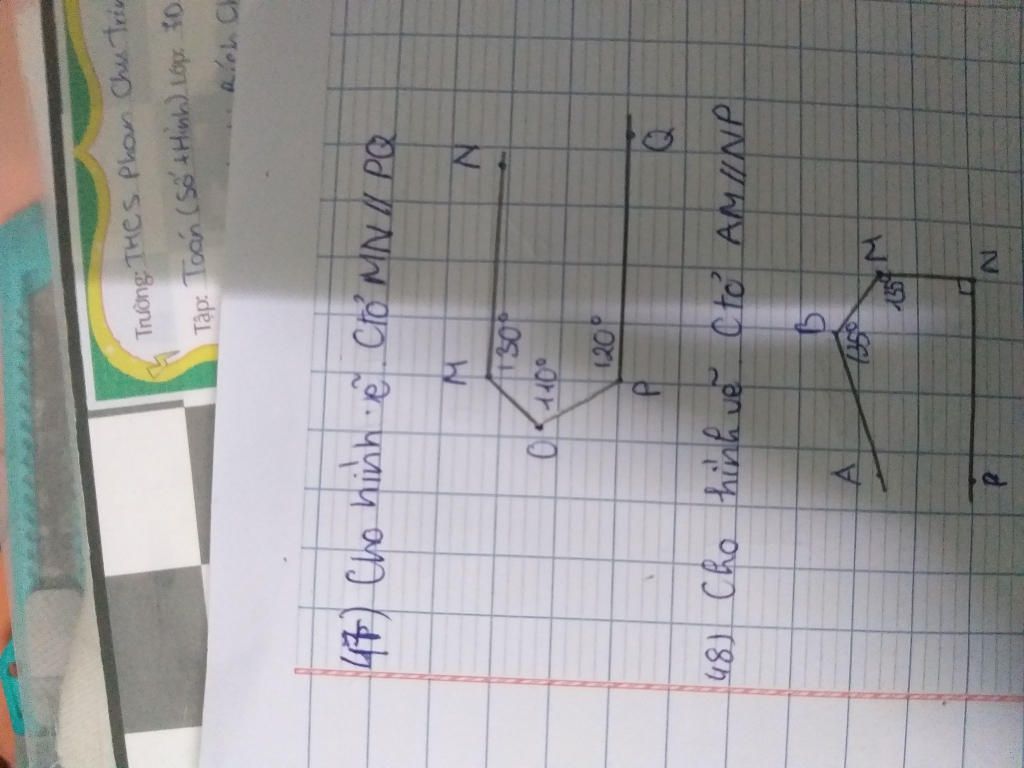 Trường: THCS Phan Chu Trin
Tập: Toán (Số + Hình) Lớp:
47) Cho hình vẽ. Ctỏ MN // PQ
M
N
130°
O
110°
120°
P
Q
48) Cho hình vẽ. Ctỏ AM // NP
B
A
M
135°
N
P